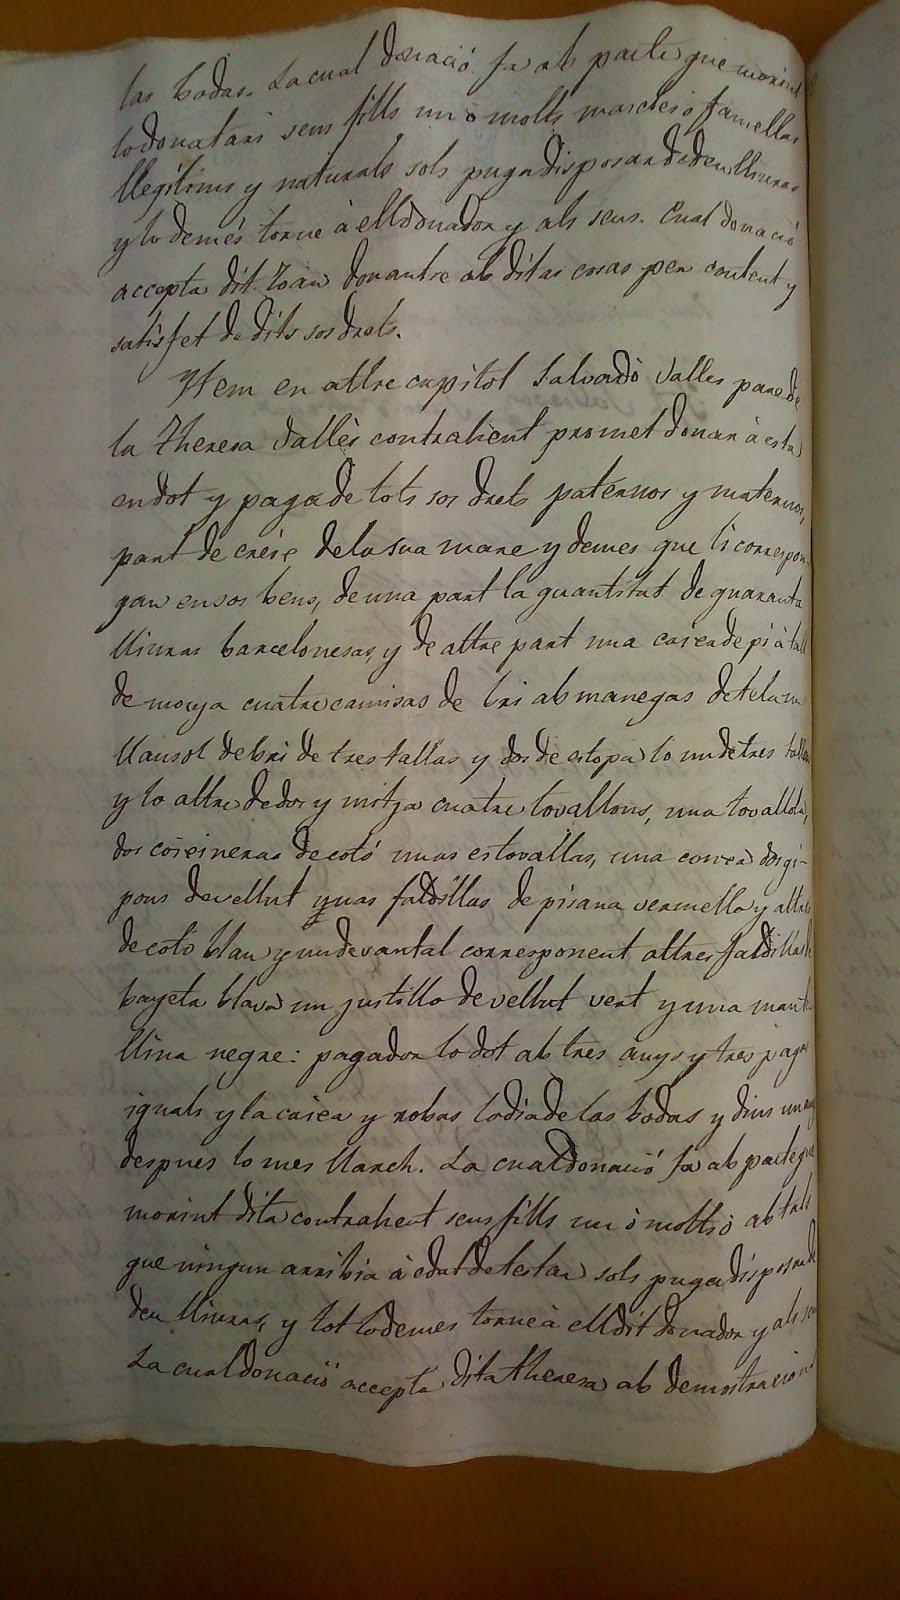 las bodas. La cual donació fa ab pacte que morint
lo donatari sens fills un ó molts mascles ó famellas
llegítims y naturals sols puga disposar de deu lliuras
y lo demés torne à ell donador y als seus. Cual donació
accepta dit Joan donantse ab ditas cosas per content y
satisfet de dits sos drets.
Item en altre capitol Salvadó Vallès pare de
la Theresa Vallès contrahent promet donar à esta
en dot y paga de tots sos drets paternos y maternos,
part de creix de la sua mare y demes que li correspon
gan en sos bens, de una part la quantitat de quaranta
lliuras barcelonesas, y de altre part una caixa de pi à tall
de monja cuatre camisas de bri ab manegas de tela un
llansol de bri de tres tallas y dos de estopa lo un de tres tallas
y lo altre de dos y mitja cuatre tovallons, una tovallola,
dos coixineras de cotó unas estovallas, una conxa dos gi-
pons de vellut y unas faldillas de pisana vermella y altres
de coto blau y un devantal corresponent altres faldillas de
bayeta blava un justillo de vellut vert y una mante
llina negre: pagador lo dot ab tres anys y tres pagas
iguals y la caixa y robas lo dia de las bodas y dins un any
despues lo mes llarch. La cual donació fa ab pacte que
morint dita contrahent sens fills un ó molts ó ab tals
que ningun arribia à edat de testar sols puga disposar de
deu lliuras, y tot lo demes torne à ell dit donador y als seus
La cual donació accepta dita Theresa ab demostracions